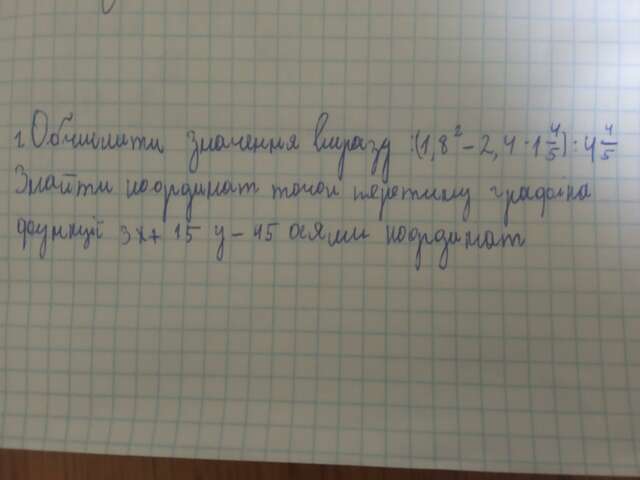 1. Обчислити значення виразу :(1,8² - 2,4 · 1 4/5) : 4 4/5
Знайти координат точои перетину графіка
функції 3x + 15 y - 45 осями координат